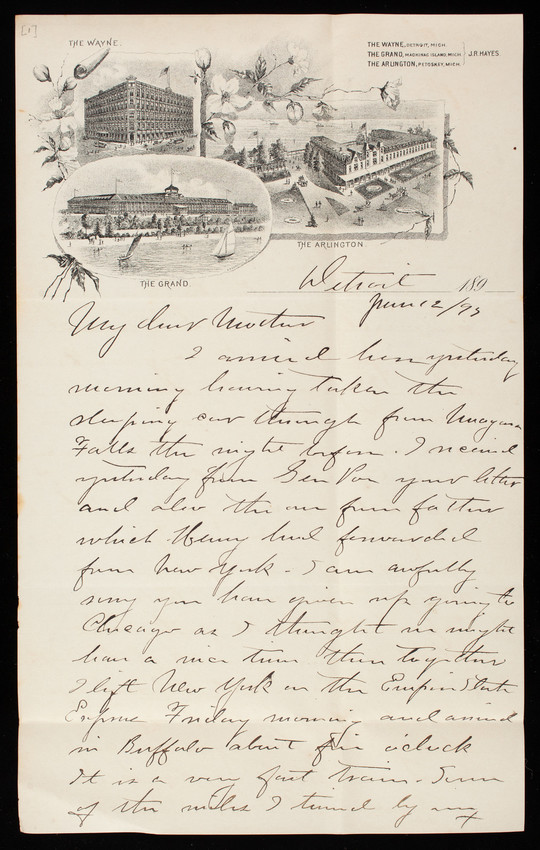 [1]
THE WAYNE.
THE WAYNE, DETROIT, MICH.
THE GRAND, MACKINAC ISLAND, MICH. J.R. HAYES.
THE ARLINGTON, PETOSKEY, MICH.
THE ARLINGTON.
THE GRAND.
Detroit 189
June 12/93
My dear Mother
I arrived here yesterday
morning having taken the
sleeping car through from Niagara
Falls the night before. I received
yesterday from Gen Poe your letter
and also the one from father
which Henry had forwarded
from New York - I am awfully
sorry you have given up going to
Chicago as I thought we might
have a nice time there together
I left New York on the Empire State
Express Friday morning and arrived
in Buffalo about five o'clock
It is a very fast train - Some
of the miles I timed by my